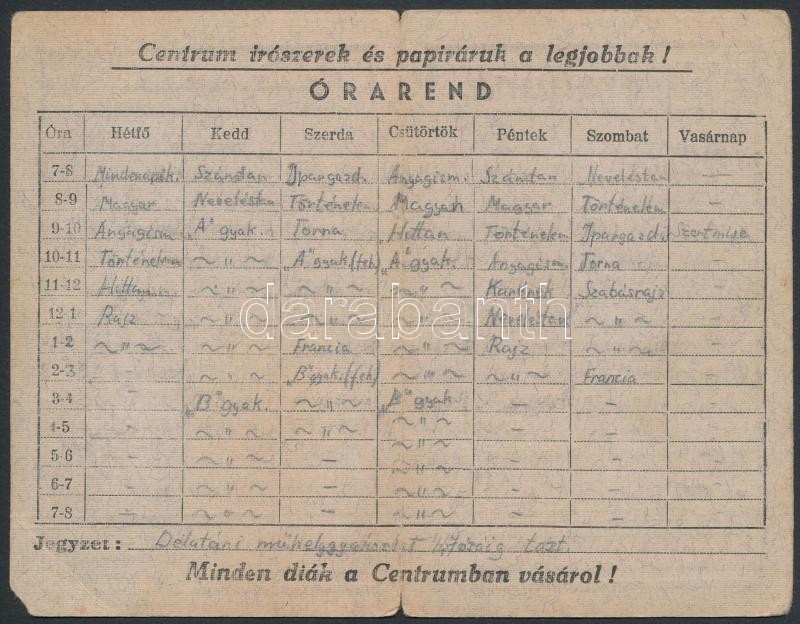 Centrum irószerek és papiráruk a legjobbak!
ÓRAREND
Óra Hétfő Kedd Szerda Csütörtök Péntek Szombat Vasárnap
7-8 Számtan Ipargazd. Anyagism. Számtan Neveléstan –
8-9 Magyar Neveléstan Történelem Magyar Magyar Történelem –
9-10 Anyagism. „A" gyak. Torna Hittan Történelem Ipargazd. Szentmise
10-11 Történelem ~ " ~ „A" gyak. (feh) „A" gyak. Anyagism. Torna –
11-12 Hittan ~ " ~ ~ " ~ ~ " ~ Szabásrajz –
12-1 Rajz ~ " ~ ~ " ~ ~ " ~ Neveléstan ~ " ~ –
1-2 ~ " ~ ~ " ~ Francia ~ " ~ Rajz ~ " ~ –
2-3 – ~ " ~ „B" gyak. (feh) ~ " ~ ~ " ~ Francia –
3-4 – „B" gyak. ~ " ~ „B" gyak. – – –
4-5 – ~ " ~ ~ " ~ ~ " ~ – – –
5-6 – ~ " ~ – ~ " ~ – – –
6-7 – ~ " ~ – ~ " ~ – – –
7-8 – ~ " ~ – ~ " ~ – – –
Jegyzet: Délutáni műhelygyakorlat
Minden diák a Centrumban vásárol!
darabanth